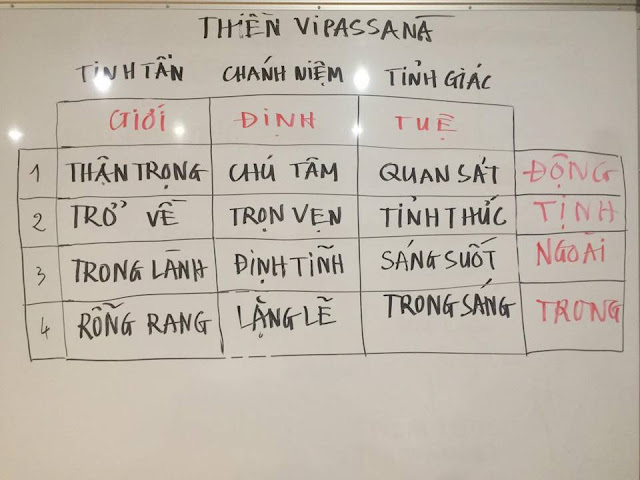 THIỀN VIPASSANĀ
TINH TẤN CHÁNH NIỆM TỈNH GIÁC
GIỚI ĐỊNH TUỆ
1 THẬN TRỌNG CHÚ TÂM QUAN SÁT ĐỘNG
2 TRỞ VỀ TRỌN VẸN TỈNH THỨC TỊNH
3 TRONG LÀNH ĐỊNH TĨNH SÁNG SUỐT NGOÀI
4 RỖNG RANG LẶNG LẼ TRONG SÁNG TRONG